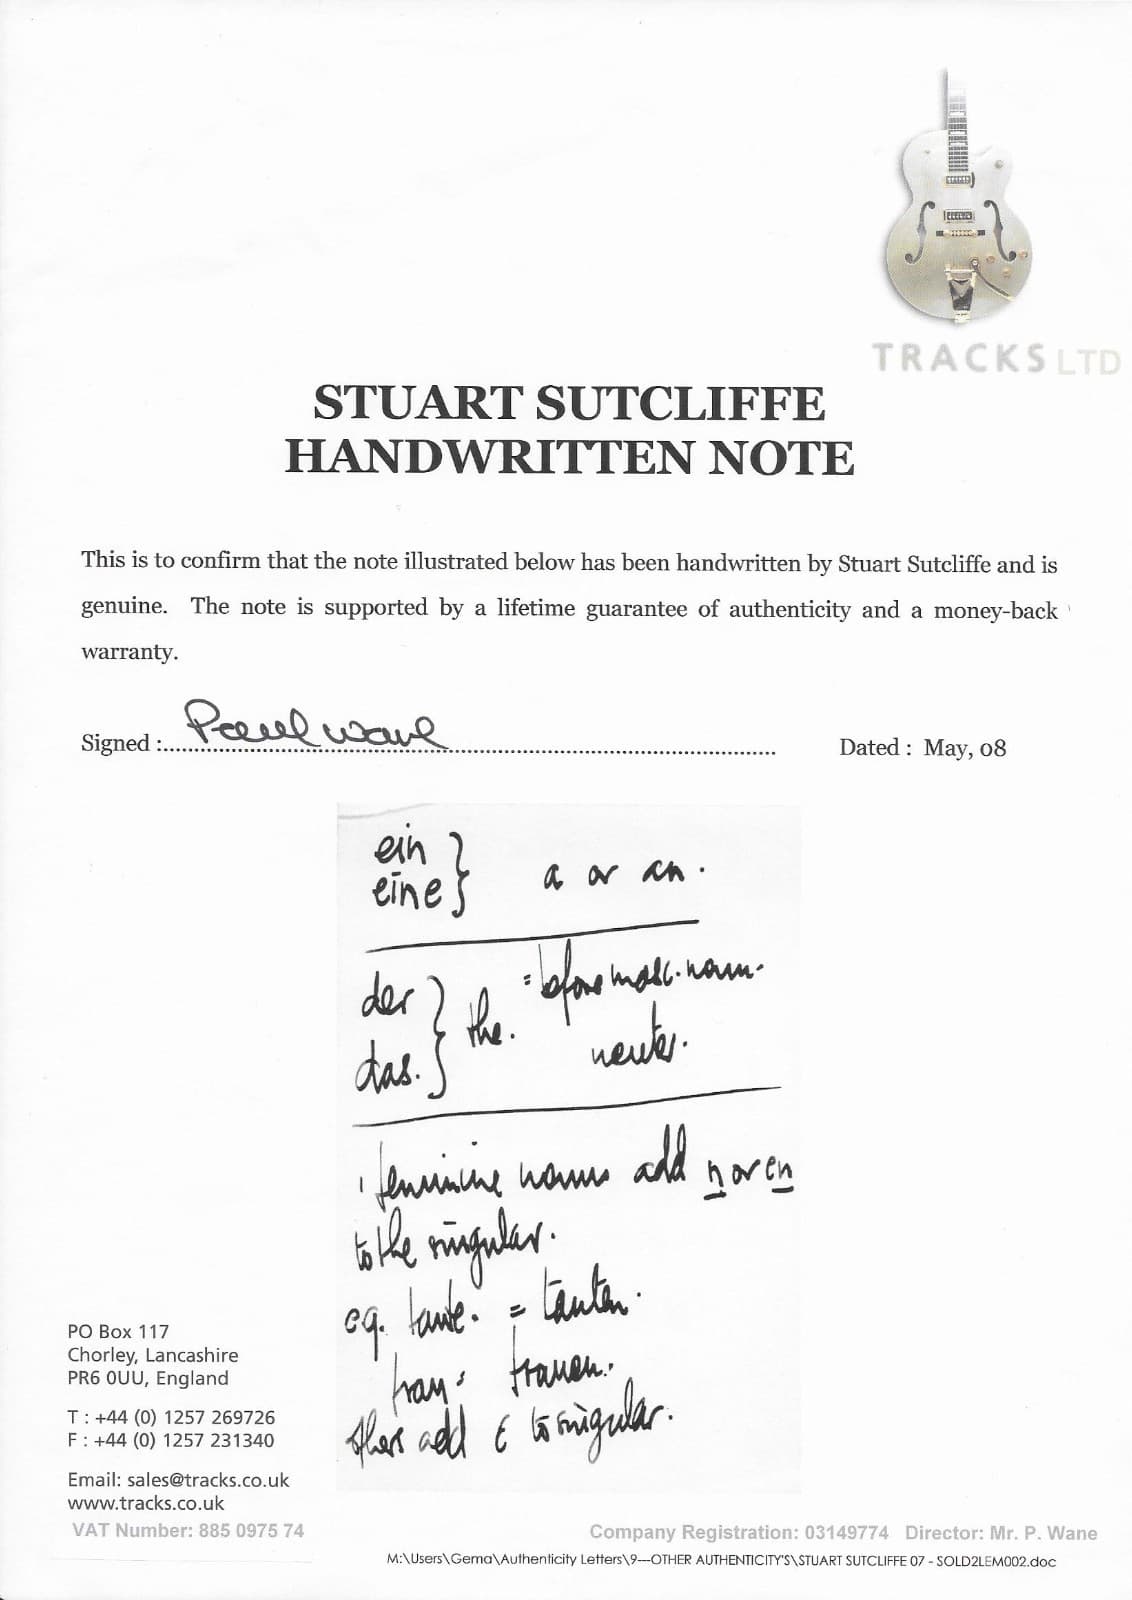 TRACKS LTD
STUART SUTCLIFFE
HANDWRITTEN NOTE
This is to confirm that the note illustrated below has been handwritten by Stuart Sutcliffe and is
genuine. The note is supported by a lifetime guarantee of authenticity and a money-back
warranty.
Signed :.......... Paul Wane
Dated : May, 08
ein
eine } a or an.
der
das. } the. = before masc. noun.
neuter.
feminine nouns add n or en
to the singular.
eg. tante. = tanten.
frau = frauen.
others add E to singular.
PO Box 117
Chorley, Lancashire
PR6 0UU, England
T : +44 (0) 1257 269726
F : +44 (0) 1257 231340
Email: sales@tracks.co.uk
www.tracks.co.uk
VAT Number: 885 0975 74
Company Registration: 03149774 Director: Mr. P. Wane
M:\Users\Gema\Authenticity Letters\9---OTHER AUTHENTICITY'S\STUART SUTCLIFFE 07 - SOLD2LEM002.doc